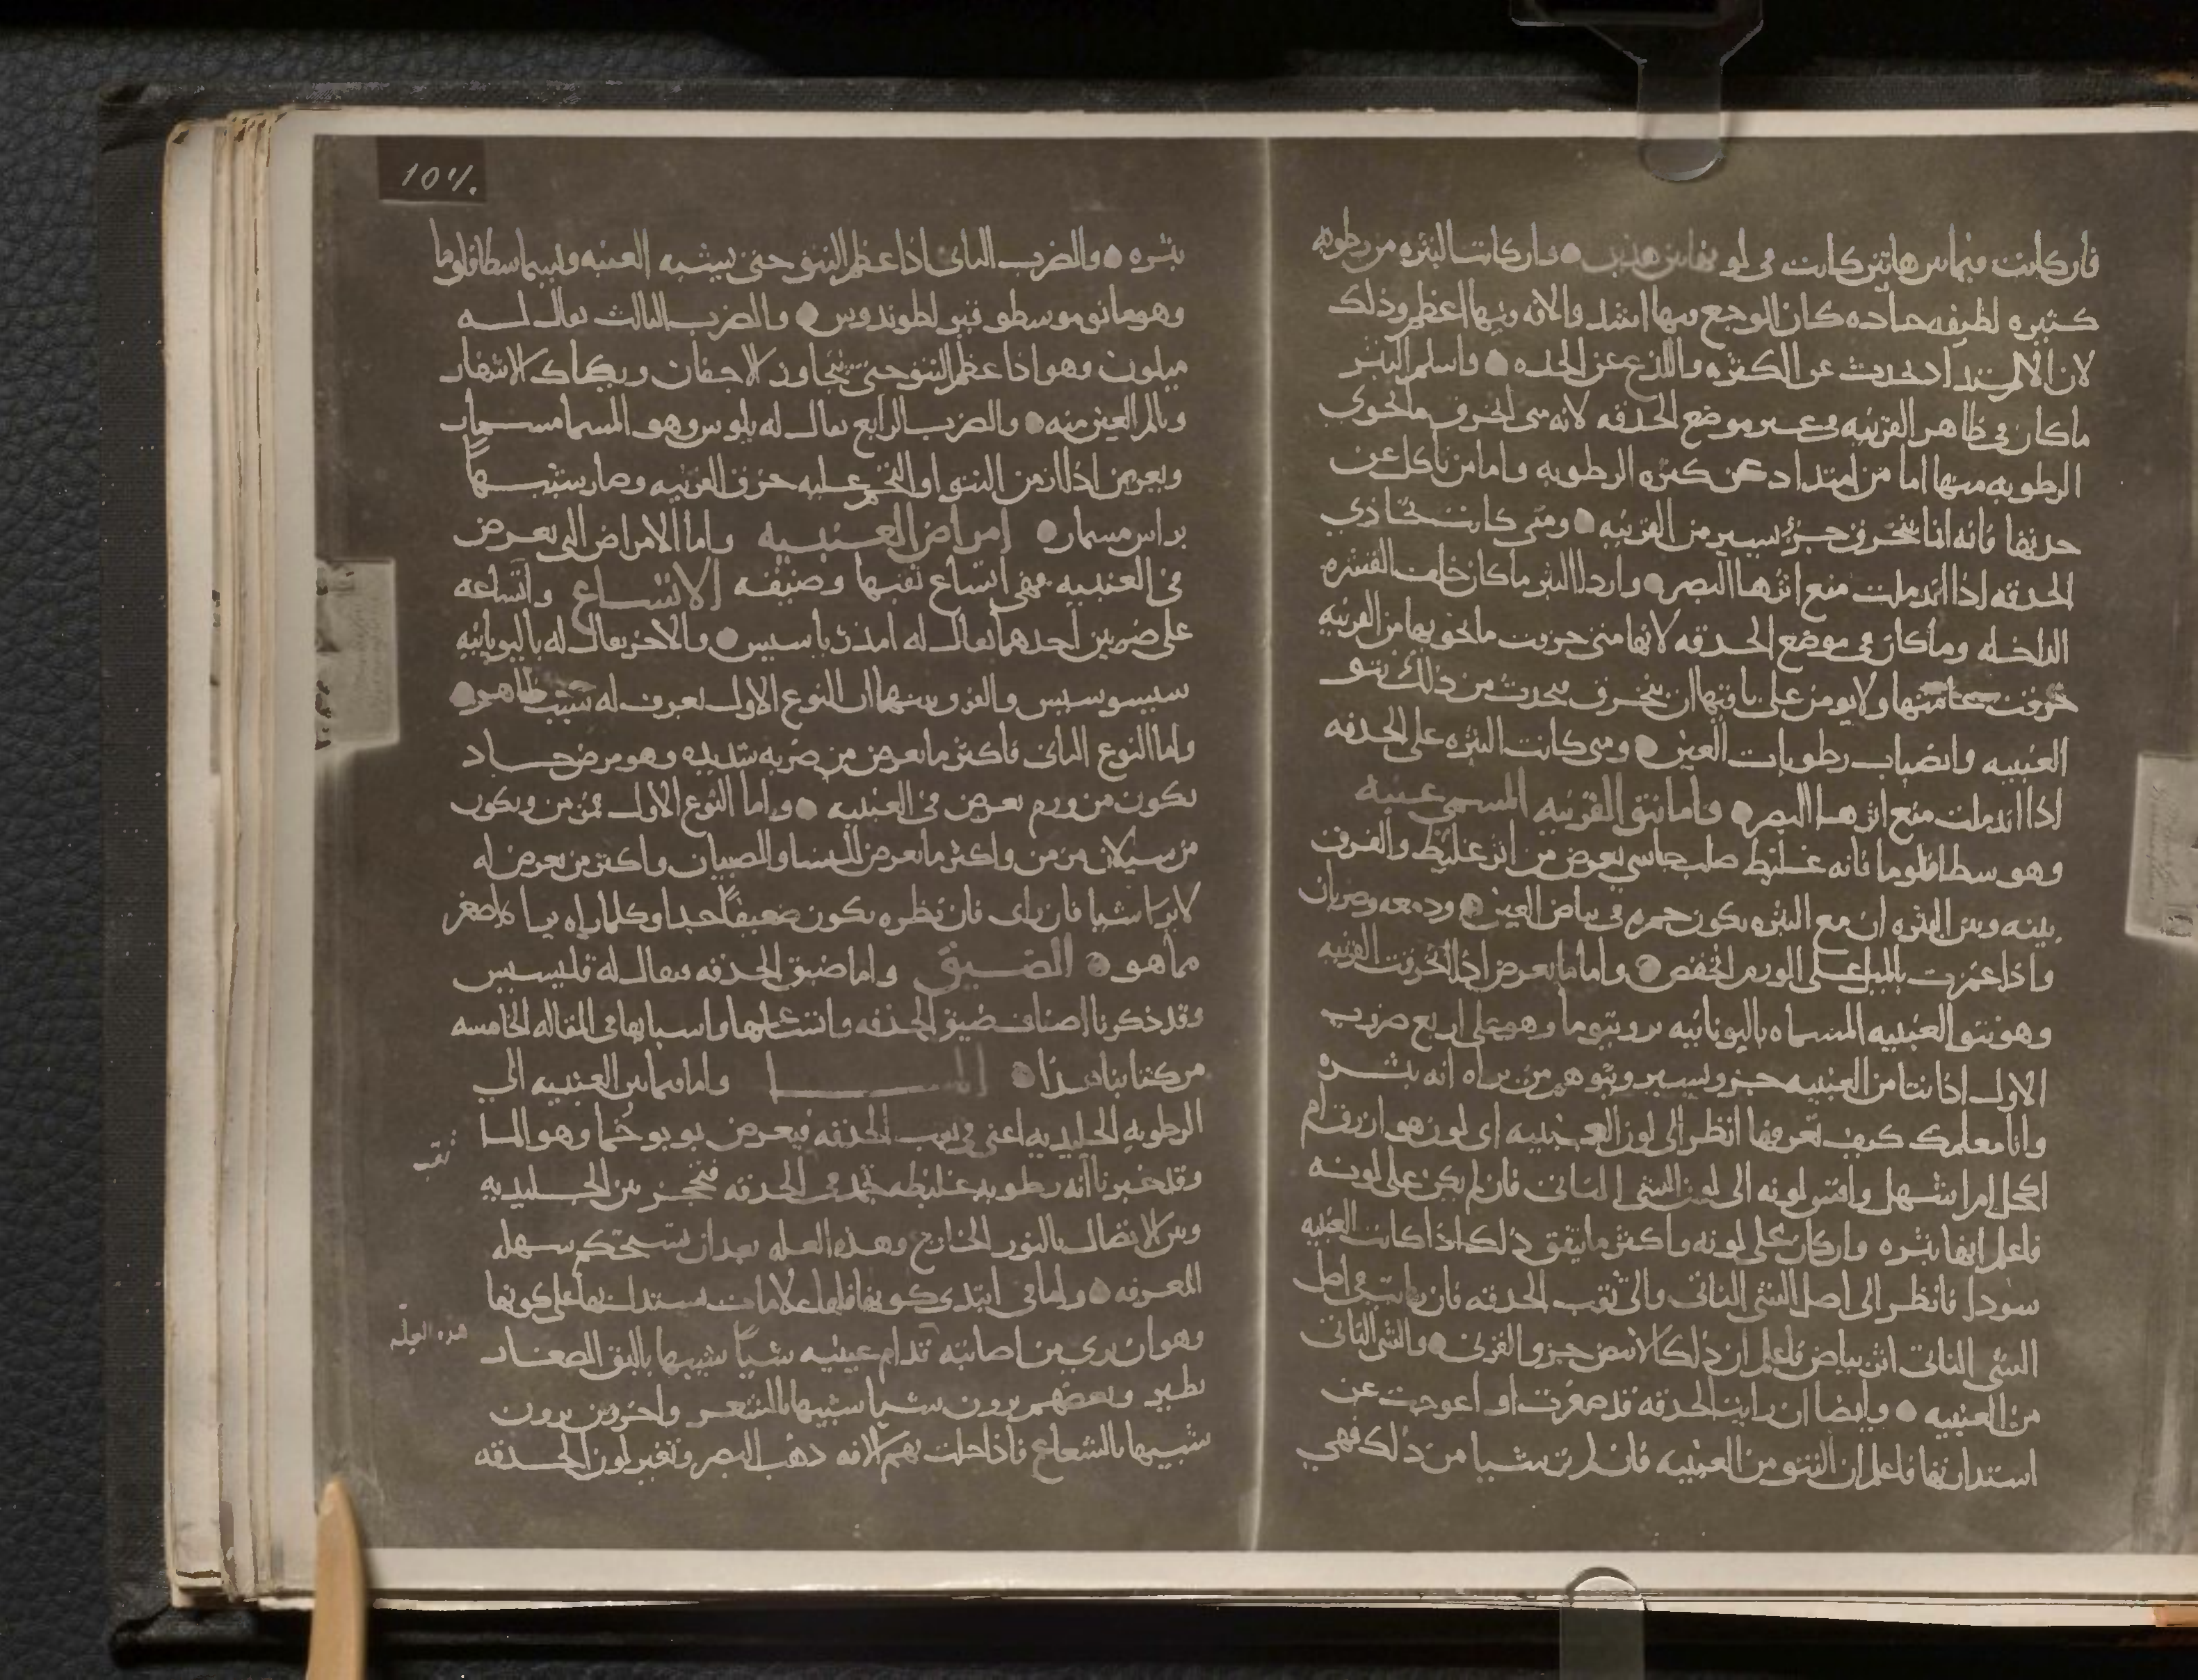 فان كانت فيما بين هاتين كانت في لو بين هذين وان كانت البثره من رطوبه
كثيره لطيفه حاده كان الوجع بها اشد والافه فيها اعظم وذلك
لان الالم يحدث عن الكثره واللذع عن الحده واسلم البثر
ما كان في ظاهر القرنيه وفي غير موضع الحدقه لانه متى انخرق ما يحوي
الرطوبه منها اما من امتداد عن كثره الرطوبه واما من تاكل عن
حدتها فانه انما ينخرق جزء يسير من القرنيه ومتى كانت تحاذي
الحدقه اذا اندملت منع اثرها البصر واردا البثر ما كان خلف القشره
الداخله وما كان في موضع الحدقه لانها متى خرقت ما يحويها من القرنيه
خرقت عامتها ولا يومن على باقيها ان ينخرق فيحدث من ذلك نتو
العنبيه وانصباب رطوبات العين ومتى كانت البثره على الحدقه
اذا اندملت منع اثرها البصر فاما نتو القرنيه المسمى عنبه
وهو سطافلوما فانه غليظ صلب جاسي يعرض من اثر غليظ والفرق
بينه وبين البثره ان مع البثره يكون حمره في بياض العين ودمعه وضربان
واذا غمزت بالميل على الورم انخفض واما ما يعرض اذا انخرقت القرنيه
وهو نتو العنبيه المسماه باليونانيه بروبتوما وهو على اربع ضروب
الاول اذا نتا من العنبيه جزو يسير ويتوهم من يراه انه بثره
وانا معلمك كيف تعرفها انظر الى لون العنبيه اي لون هو ازرق ام
اكحل ام اشهل وقس لونه الى لون الشي الناتي فان لم يكن على لونه
فاعلم انها بثره وان كان على لونه واكثر ما يتفق ذلك اذا كانت العنبيه
سودا فانظر الى اصل الشي الناتي والى ثقب الحدقه فان رايت في اصل
الشي الناتي اثر بياض فاعلم ان ذلك الابيض جزو القرني والشي الناتي
من العنبيه وايضا ان رايت الحدقه قد صغرت او اعوجت عن
استدارتها فاعلم ان النتو من العنبيه فان لم تر شيا من ذلك فهي
104.
بثره والضرب الثاني اذا عظم النتو حتى يشبه العنبه ويسما سطافلوما
والضرب الثالث يقال له
ميلون وهو اذا عظم النتو حتى يتجاوز الاجفان ويحكك الاشفار
ويالم العين منه والضرب الرابع يقال له يلوس وهو المسما مسمار
ويعرض اذا ازمن النتو او التحم عليه خرق القرنيه وصار شبيها
براس مسمار امراض العنبيه واما الامراض التي تعرض
في العنبيه فهي اتساع ثقبها وضيقه الاتساع واتساعه
على ضربين احدهما يقال له والاخر يقال له باليونانيه
والفرق بينهما ان النوع الاول يعرف له سبب ظاهر
واما النوع الثاني فاكثر ما يعرض من ضربه شديده وهو مرض حاد
يكون من ورم يعرض في العنبيه واما النوع الاول فمزمن ويكون
من سيلان مزمن واكثر ما يعرض للنسا والصبيان واكثر من يعرض له
لا يرا شيا فان راى فان نظره يكون ضعيفا جدا وكلما راه يرا اصغر
مما هو الضيق واما ضيق الحدقه فيقال له
وقد ذكرنا اصناف ضيق الحدقه واتساعها واسبابها في المقاله الخامسه
من كتابنا هذا المـا واما ما بين العنبيه الى
الرطوبه الجليديه اعني في ثقب الحدقه فيعرض يوبوخما وهو الما
وقد خبرنا انه رطوبه غليظه تجمد في الحدقه فتحجز بين الجليديه
وبين الاتصال بالنور الخارج وهذه العله بعد ان تستحكم سهله
المعرفه واما في ابتدى كونها فلها علامات يستدل بها على كونها
وهو ان يرى من اصابته قدام عينيه شيا شبيها بالبق الصغار
يطير وبعضهم يرون شيا شبيها بالشعر واخرون يرون
شبيها بالشعاع فاذا حلت بهم الافه ذهب البصر وتغير لون الحدقه
ثقب
هذه العله